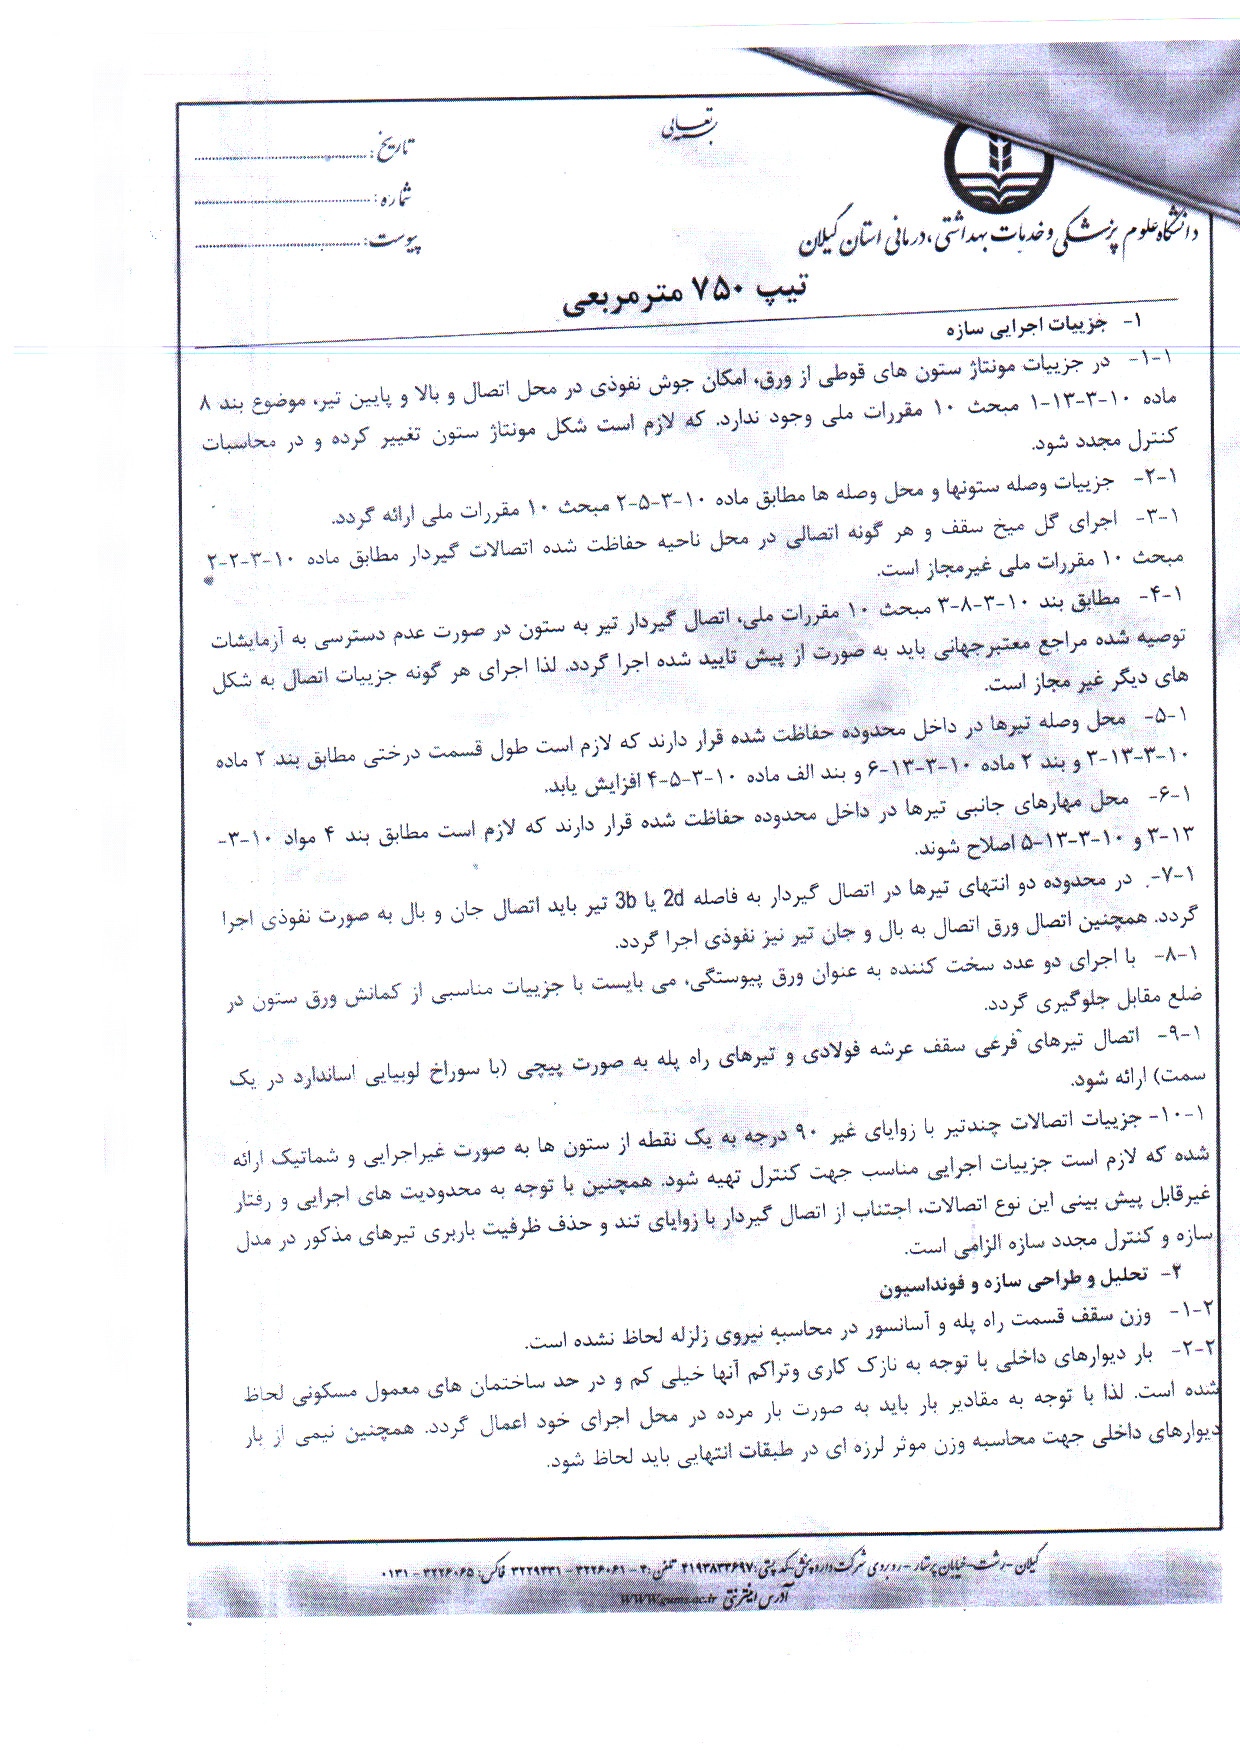 بسمه تعالی
تاریخ: ........................
شماره: ........................
پیوست: ........................
دانشگاه علوم پزشکی و خدمات بهداشتی، درمانی استان گیلان
تیپ ۷۵۰ مترمربعی
۱- جزییات اجرایی سازه
۱-۱- در جزییات مونتاژ ستون های قوطی از ورق، امکان جوش نفوذی در محل اتصال و بالا و پایین تیر، موضوع بند ۸
ماده ۱۰-۳-۱۳-۱ مبحث ۱۰ مقررات ملی وجود ندارد. که لازم است شکل مونتاژ ستون تغییر کرده و در محاسبات
کنترل مجدد شود.
۱-۲- جزییات وصله ستونها و محل وصله ها مطابق ماده ۱۰-۳-۵-۲ مبحث ۱۰ مقررات ملی ارائه گردد.
۱-۳- اجرای گل میخ سقف و هر گونه اتصالی در محل ناحیه حفاظت شده اتصالات گیردار مطابق ماده ۱۰-۳-۲-۲
مبحث ۱۰ مقررات ملی غیرمجاز است.
۱-۴- مطابق بند ۱۰-۳-۸-۳ مبحث ۱۰ مقررات ملی، اتصال گیردار تیر به ستون در صورت عدم دسترسی به آزمایشات
توصیه شده مراجع معتبرجهانی باید به صورت از پیش تایید شده اجرا گردد. لذا اجرای هر گونه جزییات اتصال به شکل
های دیگر غیر مجاز است.
۱-۵- محل وصله تیرها در داخل محدوده حفاظت شده قرار دارند که لازم است طول قسمت درختی مطابق بند ۲ ماده
۱۰-۳-۱۳-۳ و بند ۲ ماده ۱۰-۳-۱۳-۶ و بند الف ماده ۱۰-۳-۵-۴ افزایش یابد.
۱-۶- محل مهارهای جانبی تیرها در داخل محدوده حفاظت شده قرار دارند که لازم است مطابق بند ۴ مواد ۱۰-۳-
۱۳-۳ و ۱۰-۳-۱۳-۵ اصلاح شوند.
۱-۷- در محدوده دو انتهای تیرها در اتصال گیردار به فاصله 2d یا 3b تیر باید اتصال جان و بال به صورت نفوذی اجرا
گردد. همچنین اتصال ورق اتصال به بال و جان تیر نیز نفوذی اجرا گردد.
۱-۸- با اجرای دو عدد سخت کننده به عنوان ورق پیوستگی، می بایست با جزییات مناسبی از کمانش ورق ستون در
ضلع مقابل جلوگیری گردد.
۱-۹- اتصال تیرهای فرعی سقف عرشه فولادی و تیرهای راه پله به صورت پیچی (با سوراخ لوبیایی اساندارد در یک
سمت) ارائه شود.
۱-۱۰- جزییات اتصالات چندتیر با زوایای غیر ۹۰ درجه به یک نقطه از ستون ها به صورت غیراجرایی و شماتیک ارائه
شده که لازم است جزییات اجرایی مناسب جهت کنترل تهیه شود. همچنین با توجه به محدودیت های اجرایی و رفتار
غیرقابل پیش بینی این نوع اتصالات، اجتناب از اتصال گیردار با زوایای تند و حذف ظرفیت باربری تیرهای مذکور در مدل
سازه و کنترل مجدد سازه الزامی است.
۲- تحلیل و طراحی سازه و فونداسیون
۲-۱- وزن سقف قسمت راه پله و آسانسور در محاسبه نیروی زلزله لحاظ نشده است.
۲-۲- بار دیوارهای داخلی با توجه به نازک کاری وتراکم آنها خیلی کم و در حد ساختمان های معمول مسکونی لحاظ
شده است. لذا با توجه به مقادیر بار باید به صورت بار مرده در محل اجرای خود اعمال گردد. همچنین نیمی از بار
دیوارهای داخلی جهت محاسبه وزن موثر لرزه ای در طبقات انتهایی باید لحاظ شود.
گیلان - رشت - خیابان پرستار - روبروی شرکت داروپخش - کد پستی: ۴۱۹۳۸۳۳۶۹۷ تلفن: ۳۰ - ۳۲۲۶۰۶۱ - ۳۲۲۹۳۳۱ فاکس: ۳۲۲۶۰۶۵ - ۰۱۳۱
آدرس اینترنتی www.gums.ac.ir